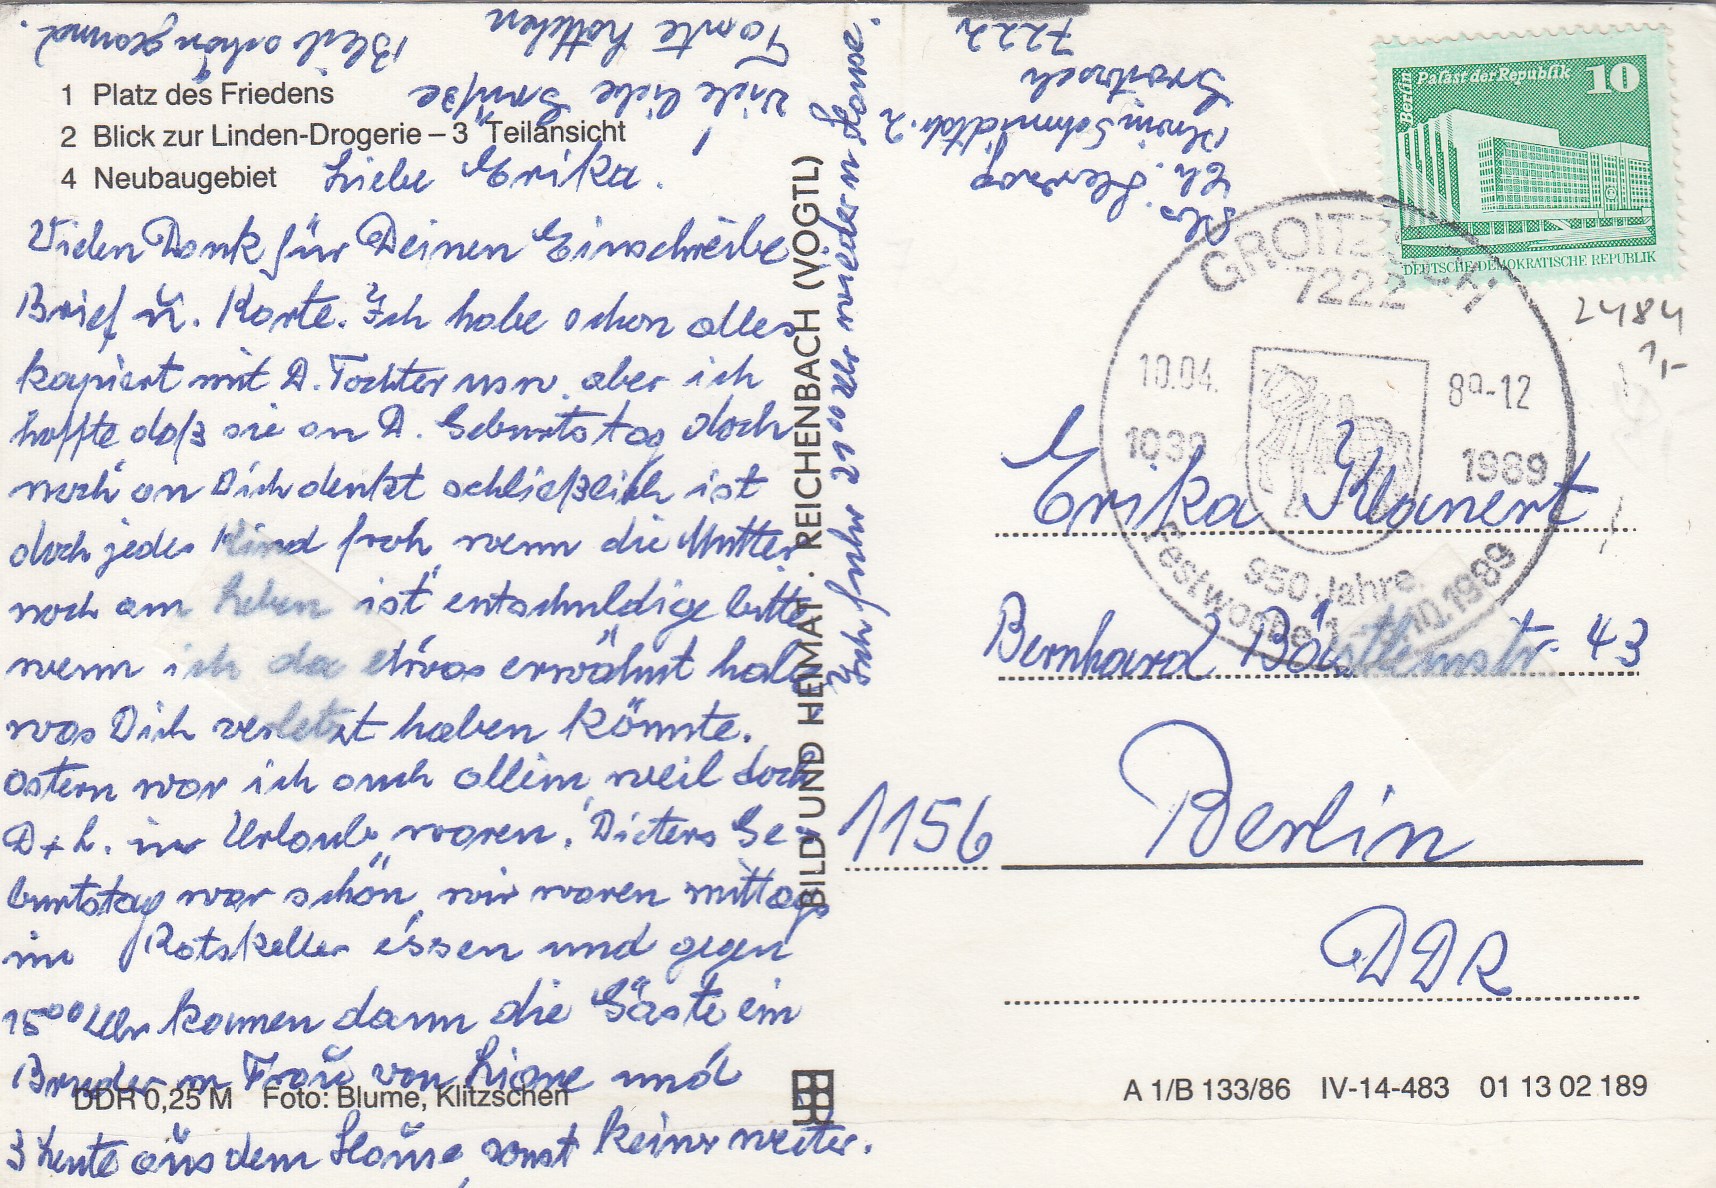 1 Platz des Friedens
2 Blick zur Linden-Drogerie – 3 Teilansicht
4 Neubaugebiet
Liebe Erika.
Vielen Dank für Deinen Einschreibe
Brief u. Karte. Ich habe schon alles
kapiert mit D. Tochter usw. aber ich
hoffte daß sie an D. Geburtstag doch
noch an Dich denkt schließlich ist
doch jedes Kind froh, wenn die Mutter
noch am Leben ist entschuldige bitte
wenn ich da etwas erwähnt habe
was Dich verletzt haben könnte.
Ostern war ich auch allein, weil doch
D + L. in Urlaub waren. Dieters Ge-
burtstag war schön, wir waren mittags
im Ratskeller essen und gegen
15⁰⁰ Uhr kamen dann die Gäste ein
Bruder Frau von Liane und
3 Leute aus dem Hause, sonst keiner weiter.
Ich fuhr 21⁰⁰ Uhr wieder n Hause.
Viele liebe Grüße
Tante Lottchen Bleib schön gesund.
BILD UND HEIMAT · REICHENBACH (VOGTL)
DDR 0,25 M Foto: Blume, Klitzschen
Abs.
7222
Groitzsch
Berlin Palast der Republik 10
DEUTSCHE DEMOKRATISCHE REPUBLIK
GROITZSCH
7222
10.04. 89-12
1039 1989
950 Jahre
Festwoche 10.1989
2484
1,-
Erika Klanert
Bernhard Bästleinstr. 43
1156 Berlin
DDR
A 1/B 133/86 IV-14-483 01 13 02 189